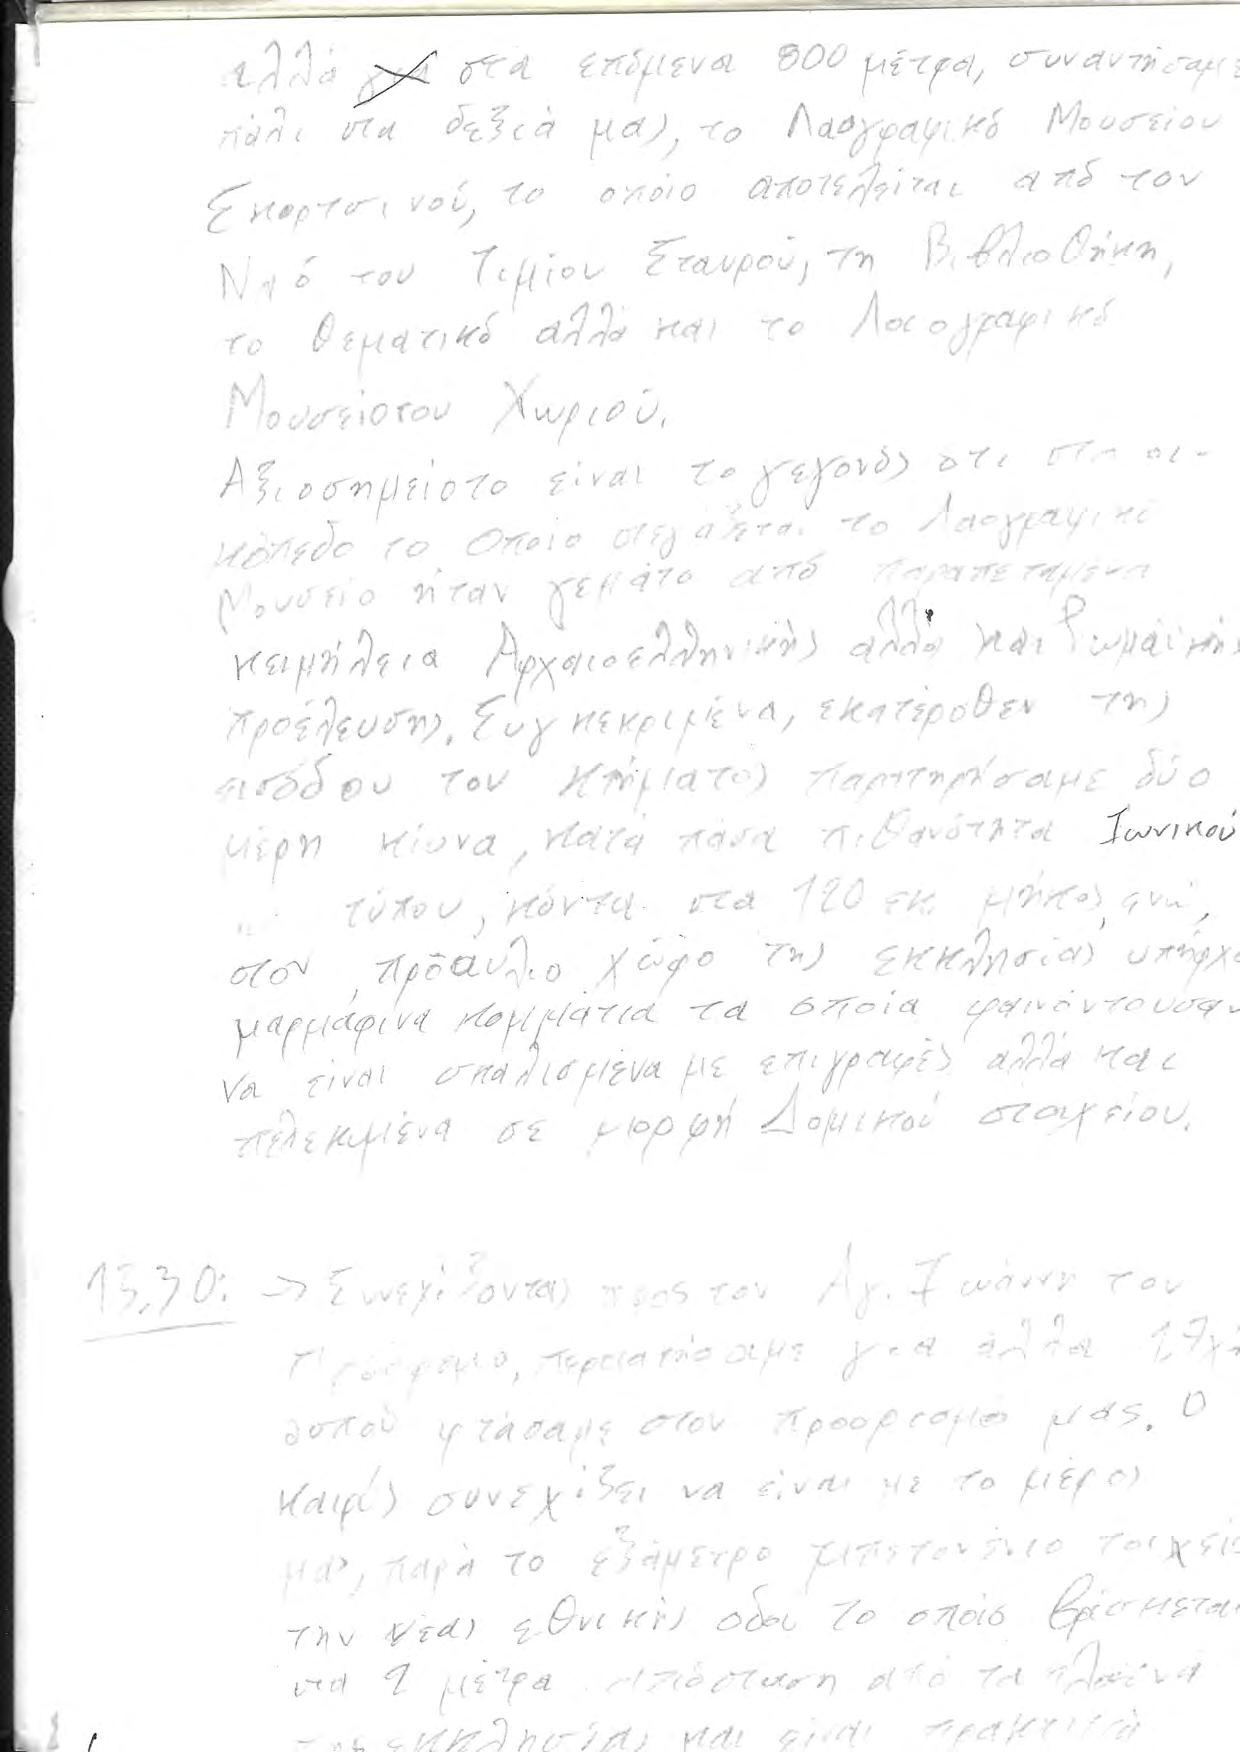 αλλά στα επόμενα 800 μέτρα, συναντήσαμε
πάλι στα δεξιά μας, το Λαογραφικό Μουσείου
Σκορτσινού, το οποίο αποτελείται από τον
Ναό του Τιμίου Σταυρού, τη Βιβλιοθήκη,
το θεματικό αλλά και το Λαογραφικό
Μουσείο του Χωριού.
Αξιοσημείοτο είναι το γεγονός οτι στο οι-
κόπεδο το οποίο στεγάζεται το Λαογραφικό
Μουσείο ήταν γεμάτο από παραπεταμένα
κειμήλεια Αρχαιοελληνικής αλλά και Ρωμαϊκής
προέλευσης. Συγκεκριμένα, εκατέροθεν της
εισόδου του κτήματος παρατηρήσαμε δύο
μέρη κίονα, κατά πάσα πιθανότητα Ιωνικού
τύπου, κόντα στα 120 εκ. μήκος, ενώ,
στον προαύλιο χώρο της εκκλησίας υπήρχα
μαρμάρινα κομμάτια τα οποία φαινόντουσαν
να είναι σπαλισμένα με επιγραφές αλλά και
πελεκιμένα σε μορφή Δομικού στοιχείου.
13.30: → Συνεχίζοντας προς τον Αγ. Ιωάννη τον
περπατήσαμε για άλλα 1,7χλ
ώσπου φτάσαμε στον προορισμό μας. Ο
καιρός συνεχίζει να είναι με το μέρος
μας, παρά το εξάμετρο τσιπετονένιο τοιχείο
την νέας εθνικής οδού το οποίο βρίσκεται
στα 2 μέτρα απόσταση από τα πλαϊνά
της εκκλησίας και είναι πρακτικά